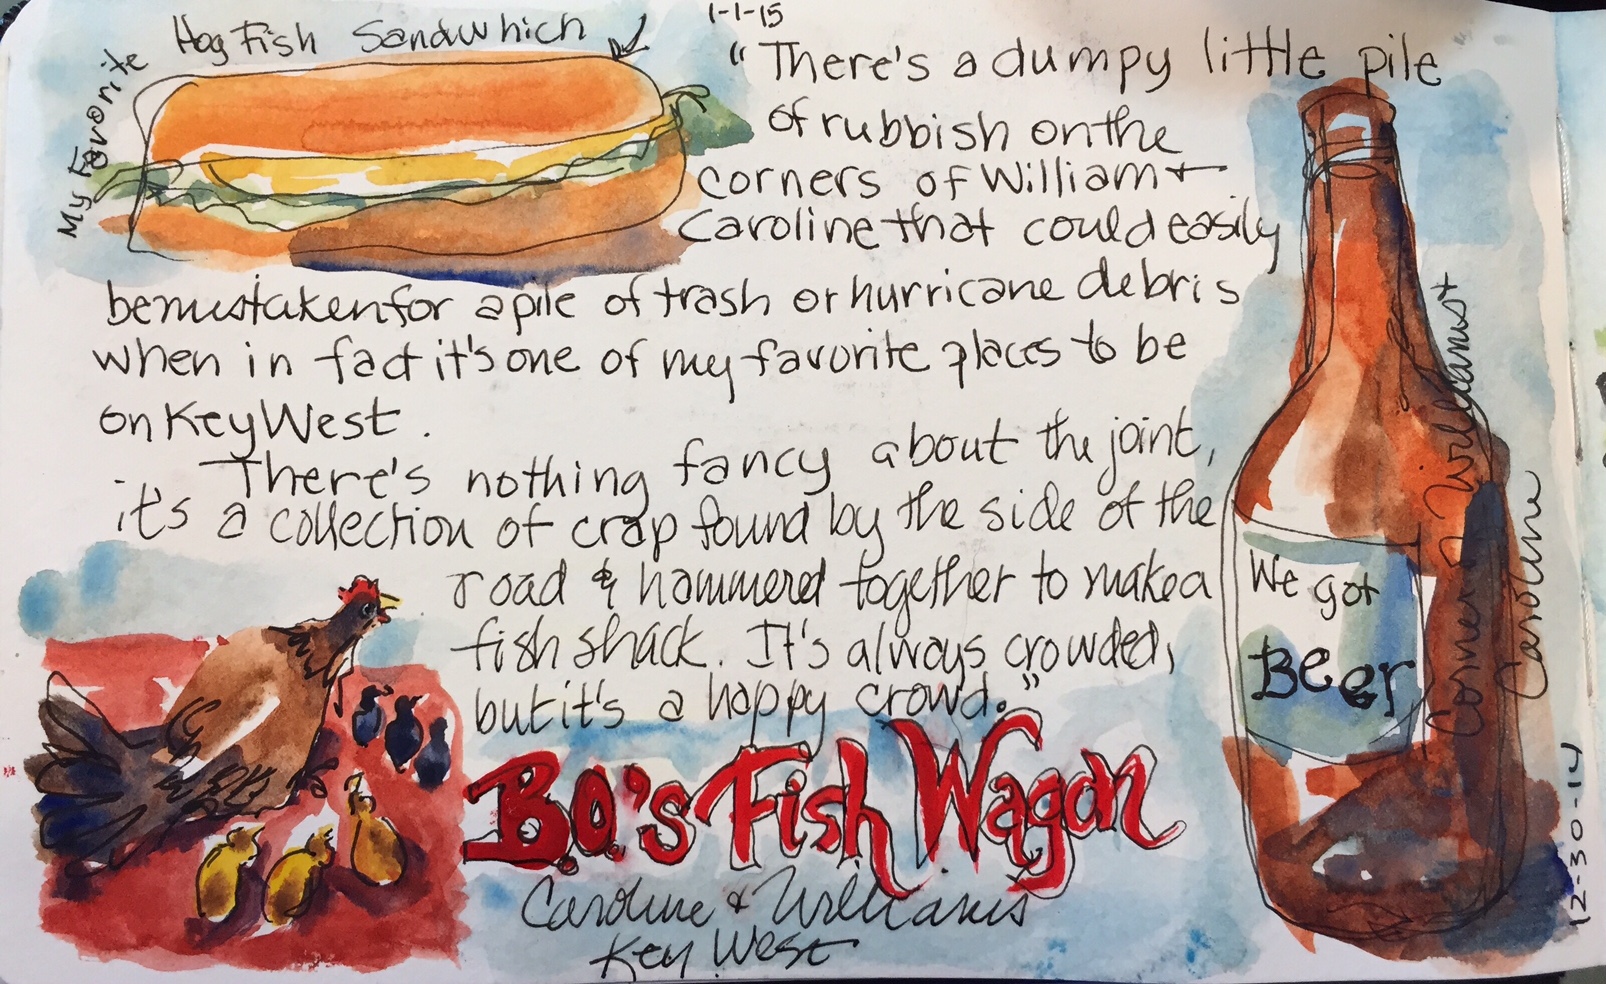 1-1-15
Hog Fish Sandwhich
My Favorite
"There's a dumpy little pile
of rubbish on the
corners of William +
Caroline that could easily
be mistaken for a pile of trash or hurricane debris
when in fact it's one of my favorite places to be
on Key West.
There's nothing fancy about the joint,
it's a collection of crap found by the side of the
road & hammered together to make a
fish shack. It's always crowded,
but it's a happy crowd."
B.O.'s Fish Wagon
Caroline & Williams
Key West
We got
Beer
Corner Williams +
Caroline
12-30-14